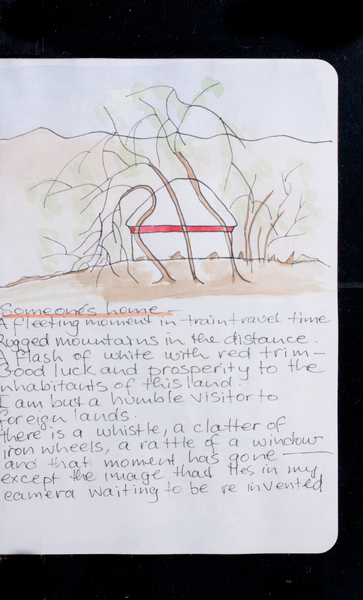 Someone's home -
A fleeting moment in train travel time
Rugged mountains in the distance.
A flash of white with red trim -
Good luck and prosperity to the
inhabitants of this land.
I am but a humble visitor to
foreign lands.
there is a whistle, a clatter of
iron wheels, a rattle of a window
and that moment has gone ——
except the image that lies in my
camera waiting to be re invented